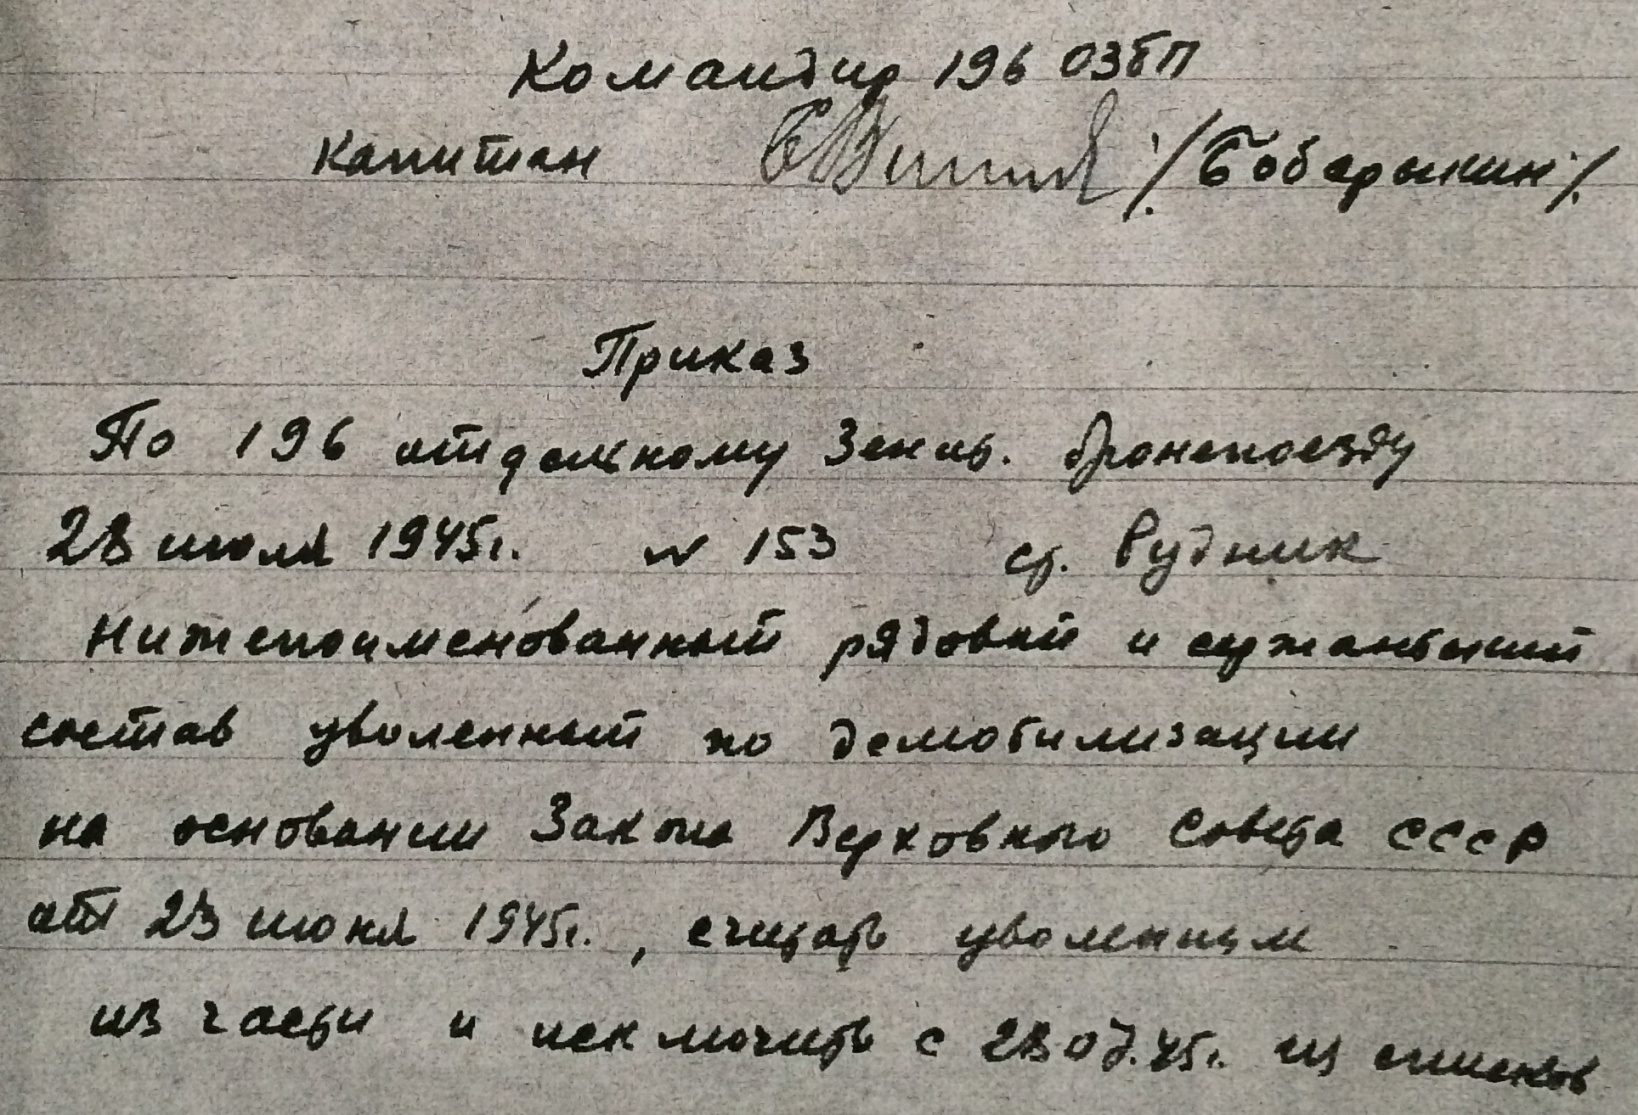 Командир 196 ОЗБП
Капитан /Бобарыкин/.
Приказ
По 196 отдельному Зенит. бронепоезду
28 июля 1945г. N 153 ст. Рудник
Нижепоименованный рядовой и сержантский
состав уволенный по демобилизации
на основании Закона Верховного Совета СССР
от 23 июня 1945г., считать уволенным
из части и исключить с 28 07.45г. из списков